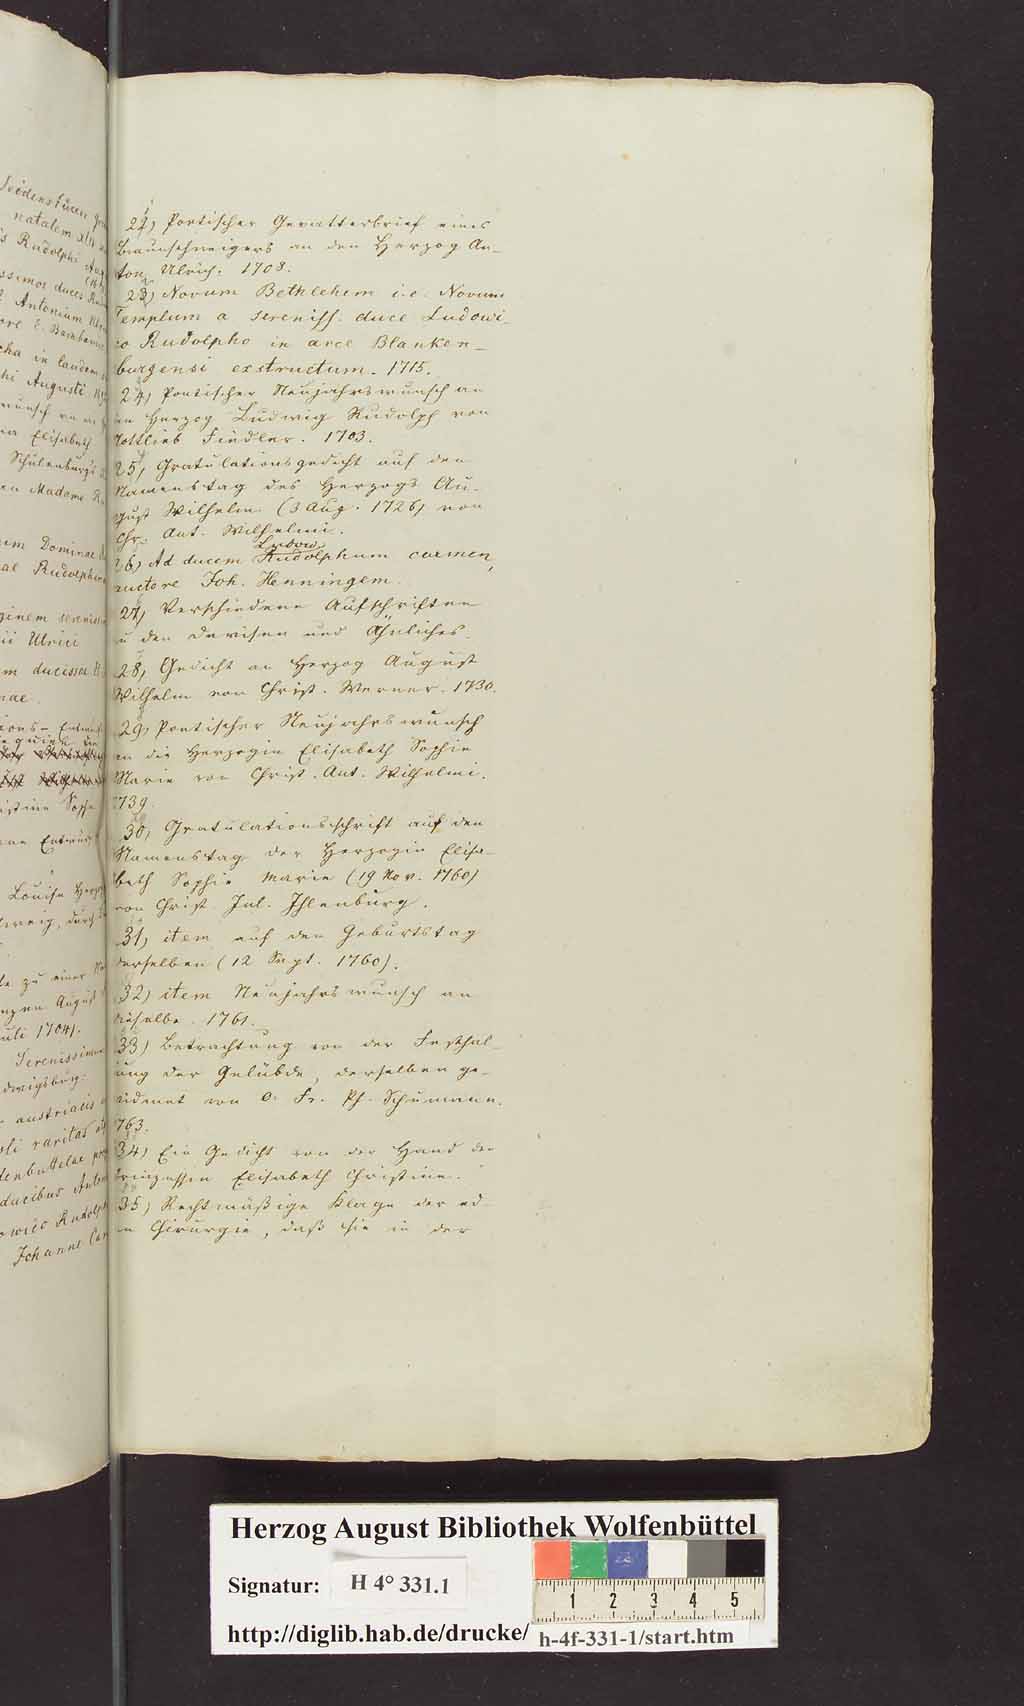 22) Poetischer Gevatterbrief eines
Braunschweigers an den Herzog An-
ton Ulrich. 1708.
23) Novum Bethlehem i.e. Novum
Templum a sereniss. duce Ludowi-
co Rudolpho in arce Blanken-
burgensi exstructum. 1715.
24) Poetischer Neujahrswunsch an
den Herzog Ludwig Rudolph von
Gottlieb Fiedler. 1703.
25) Gratulationsgedicht auf den
Namenstag des Herzogs Au-
gust Wilhelm (3 Aug. 1726) von
Chr. Ant. Wilhelmi.
Ludov.
26) Ad ducem Rudolphum carmen,
auctore Joh. Henningem.
27) Verschiedene Aufschriften
zu den Devisen und Ähnliches.
28) Gedicht an Herzog August
Wilhelm von Christ. Werner. 1730.
29) Poetischer Neujahrswunsch
an die Herzogin Elisabeth Sophie
Marie von Christ. Ant. Wilhelmi.
1739.
30) Gratulationsschrift auf den
Namenstag der Herzogin Elisa-
beth Sophie Marie (19 Nov. 1760)
von Christ. Jul. Ihlenburg.
31) item auf den Geburtstag
derselben (12 Sept. 1760).
32) item Neujahrswunsch an
dieselbe. 1761.
33) Betrachtung von der Festhal-
tung der Gelübde, derselben ge-
widmet von O. Fr. Ph. Schumann.
1763.
34) Ein Gedicht von der Hand der
Prinzessin Elisabeth Christine.
35) Rechtmäßige Klage der ed-
len Chirurgie, daß sie in der
Herzog August Bibliothek Wolfenbüttel
Signatur: H 4° 331.1
1 2 3 4 5
http://diglib.hab.de/drucke/ h-4f-331-1/start.htm